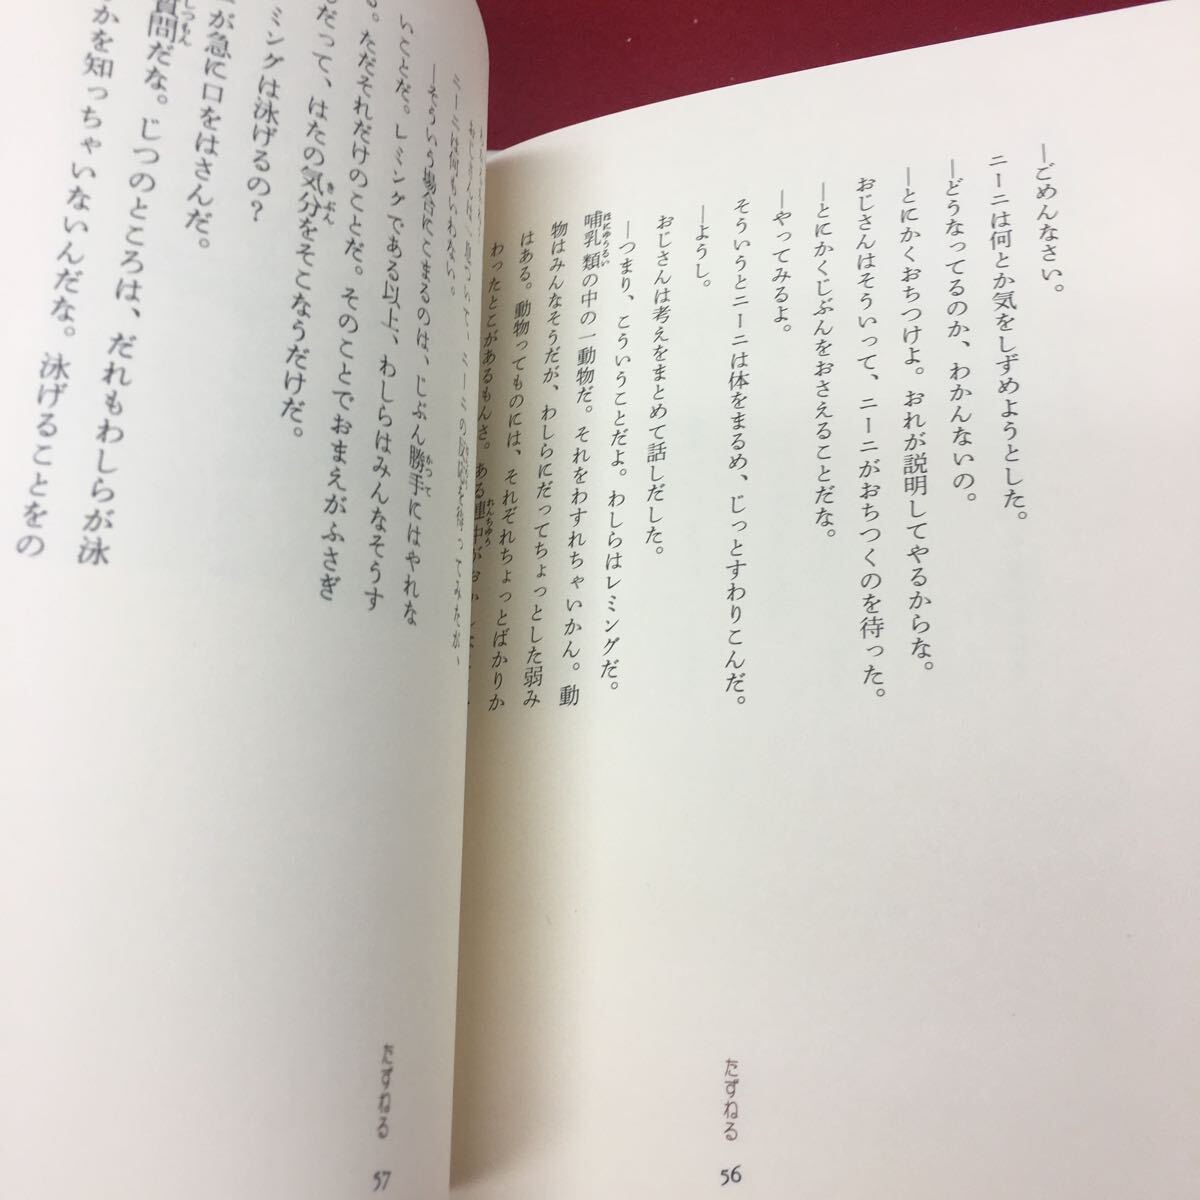 ―ごめんなさい。
ニーニは何とか気をしずめようとした。
―どうなってるのか、わかんないの。
―とにかくおちつけよ。おれが説明してやるからな。
おじさんはそういって、ニーニがおちつくのを待った。
―とにかくじぶんをおさえることだな。
―やってみるよ。
そういうとニーニは体をまるめ、じっとすわりこんだ。
―ようし。
おじさんは考えをまとめて話しだした。
―つまり、こういうことだよ。わしらはレミングだ。
哺乳類の中の一動物だ。それをわすれちゃいかん。動
ほにゅうるい
物はみんなそうだが、わしらにだってちょっとした弱み
はある。動物ってものには、それぞれちょっとばかりか
わったとこがあるもんさ。ある連中が
れんちゅう
たずねる
56
ニーニは何もいわない。
―そういう場合にこまるのは、じぶん勝手にはやれな
かって
いことだ。レミングである以上、わしらはみんなそうす
る。ただそれだけのことだ。そのことでおまえがふさぎ
だって、はたの気分をそこなうだけだ。
きぶん
ミングは泳げるの?
が急に口をはさんだ。
質問だな。じつのところは、だれもわしらが泳
しつもん
かを知っちゃいないんだな。泳げることをの
たずねる
57